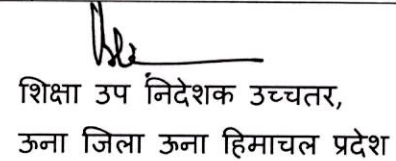 शिक्षा उप निदेशक उच्चतर,
ऊना जिला ऊना हिमाचल प्रदेश